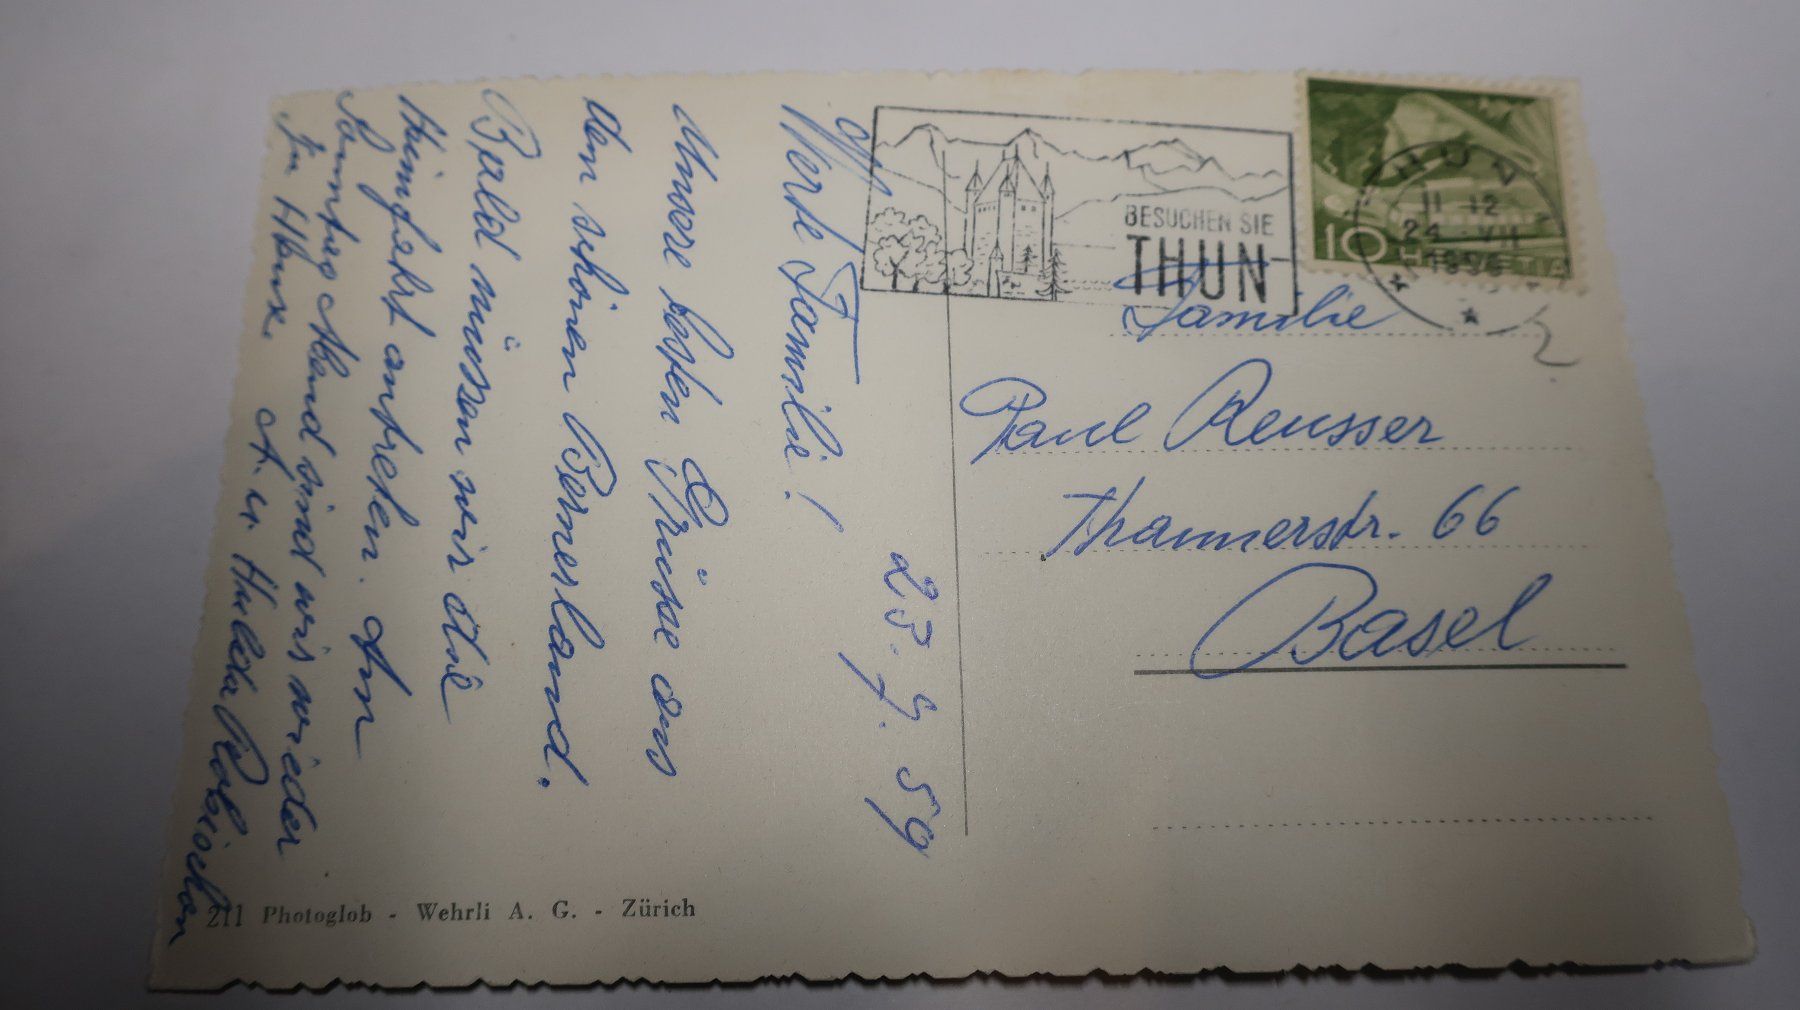 23. 7. 59
Werte Familie!
Unsere besten Grüsse aus
den schönen Bernerland.
Bald müssen wir die
Heimfahrt antreten. Am
Samstag Abend sind wir wieder
In Hause. A. u. Hulda
BESUCHEN SIE
THUN
THUN
11 12
24 VII
10 HELVETIA
Familie
Paul Reusser
Thannerstr. 66
Basel
211 Photoglob - Wehrli A. G. - Zürich